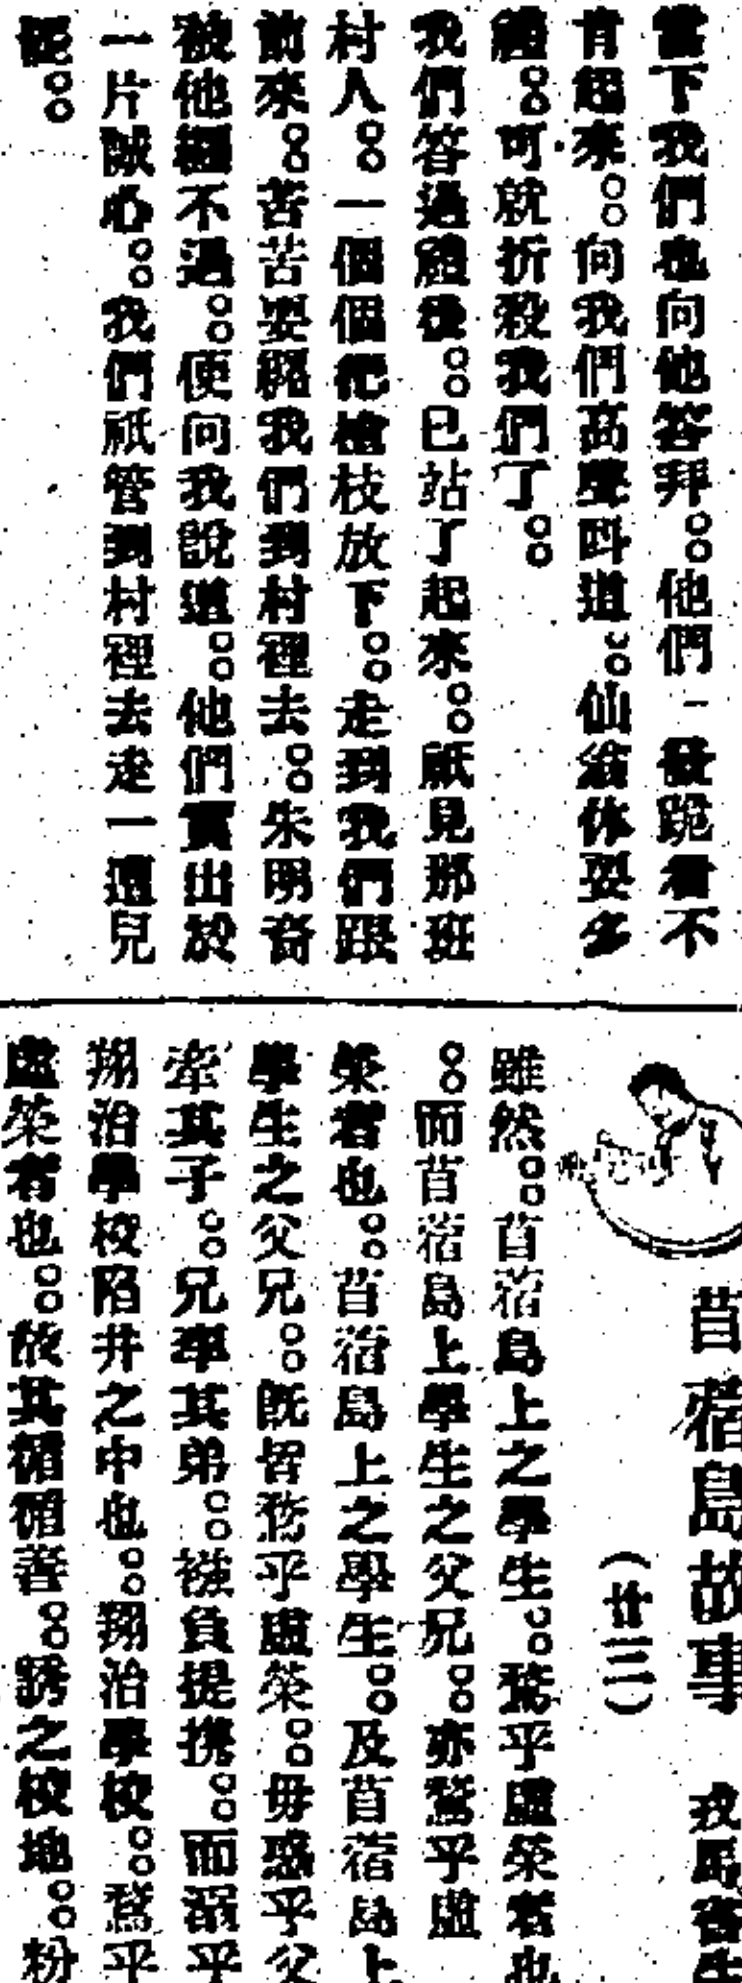 當下我們也向他答拜。。他們一發跪着不
肯起來。。向我們高聲叫道。。仙翁休要多
禮。。可就折殺我們了。。
我們答過禮後。。已站了起來。。祇見那班
村人。。一個個把槍枝放下。。走到我們跟
前來。。苦苦要邀我們到村裡去。。朱明奇
被他纏不過。。便向我說道。。他們實出於
一片誠心。。我們祇管到村裡去走一遭兒
罷。。
苜蓿島故事
(廿三)
戎馬書生
雖然。。苜蓿島上之學生。。騖乎虛榮者也
。。而苜蓿島上學生之父兄。。亦騖乎虛
榮者也。。苜蓿島上之學生。。及苜蓿島上
學生之父兄。。既皆騖乎虛榮。。毋惑乎父
牽其子。。兄率其弟。。襁負提携。。而溺乎
翔治學校陷井之中也。。翔治學校。。騖乎
虛榮者也。。故其循循善。。誘之校地。。粉